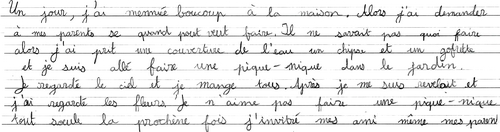 Un jour, j'ai mennuié boucoup à la maison. Alors j'ai demander
à mes parents se quand peut veut faire. Il ne savait pas quoi faire
alors j'ai prit une couverture de l'eau un chips et un gofrette
et je suis allé faire une pique-nique dans le jardin.
Je regarde le ciel et je mange tous. Après je me suis revelait et
j'ai regardé les fleurs. Je n'aime pas faire une pique-nique
tout soeule la prochène fois j'invitré mes ami même mes parents